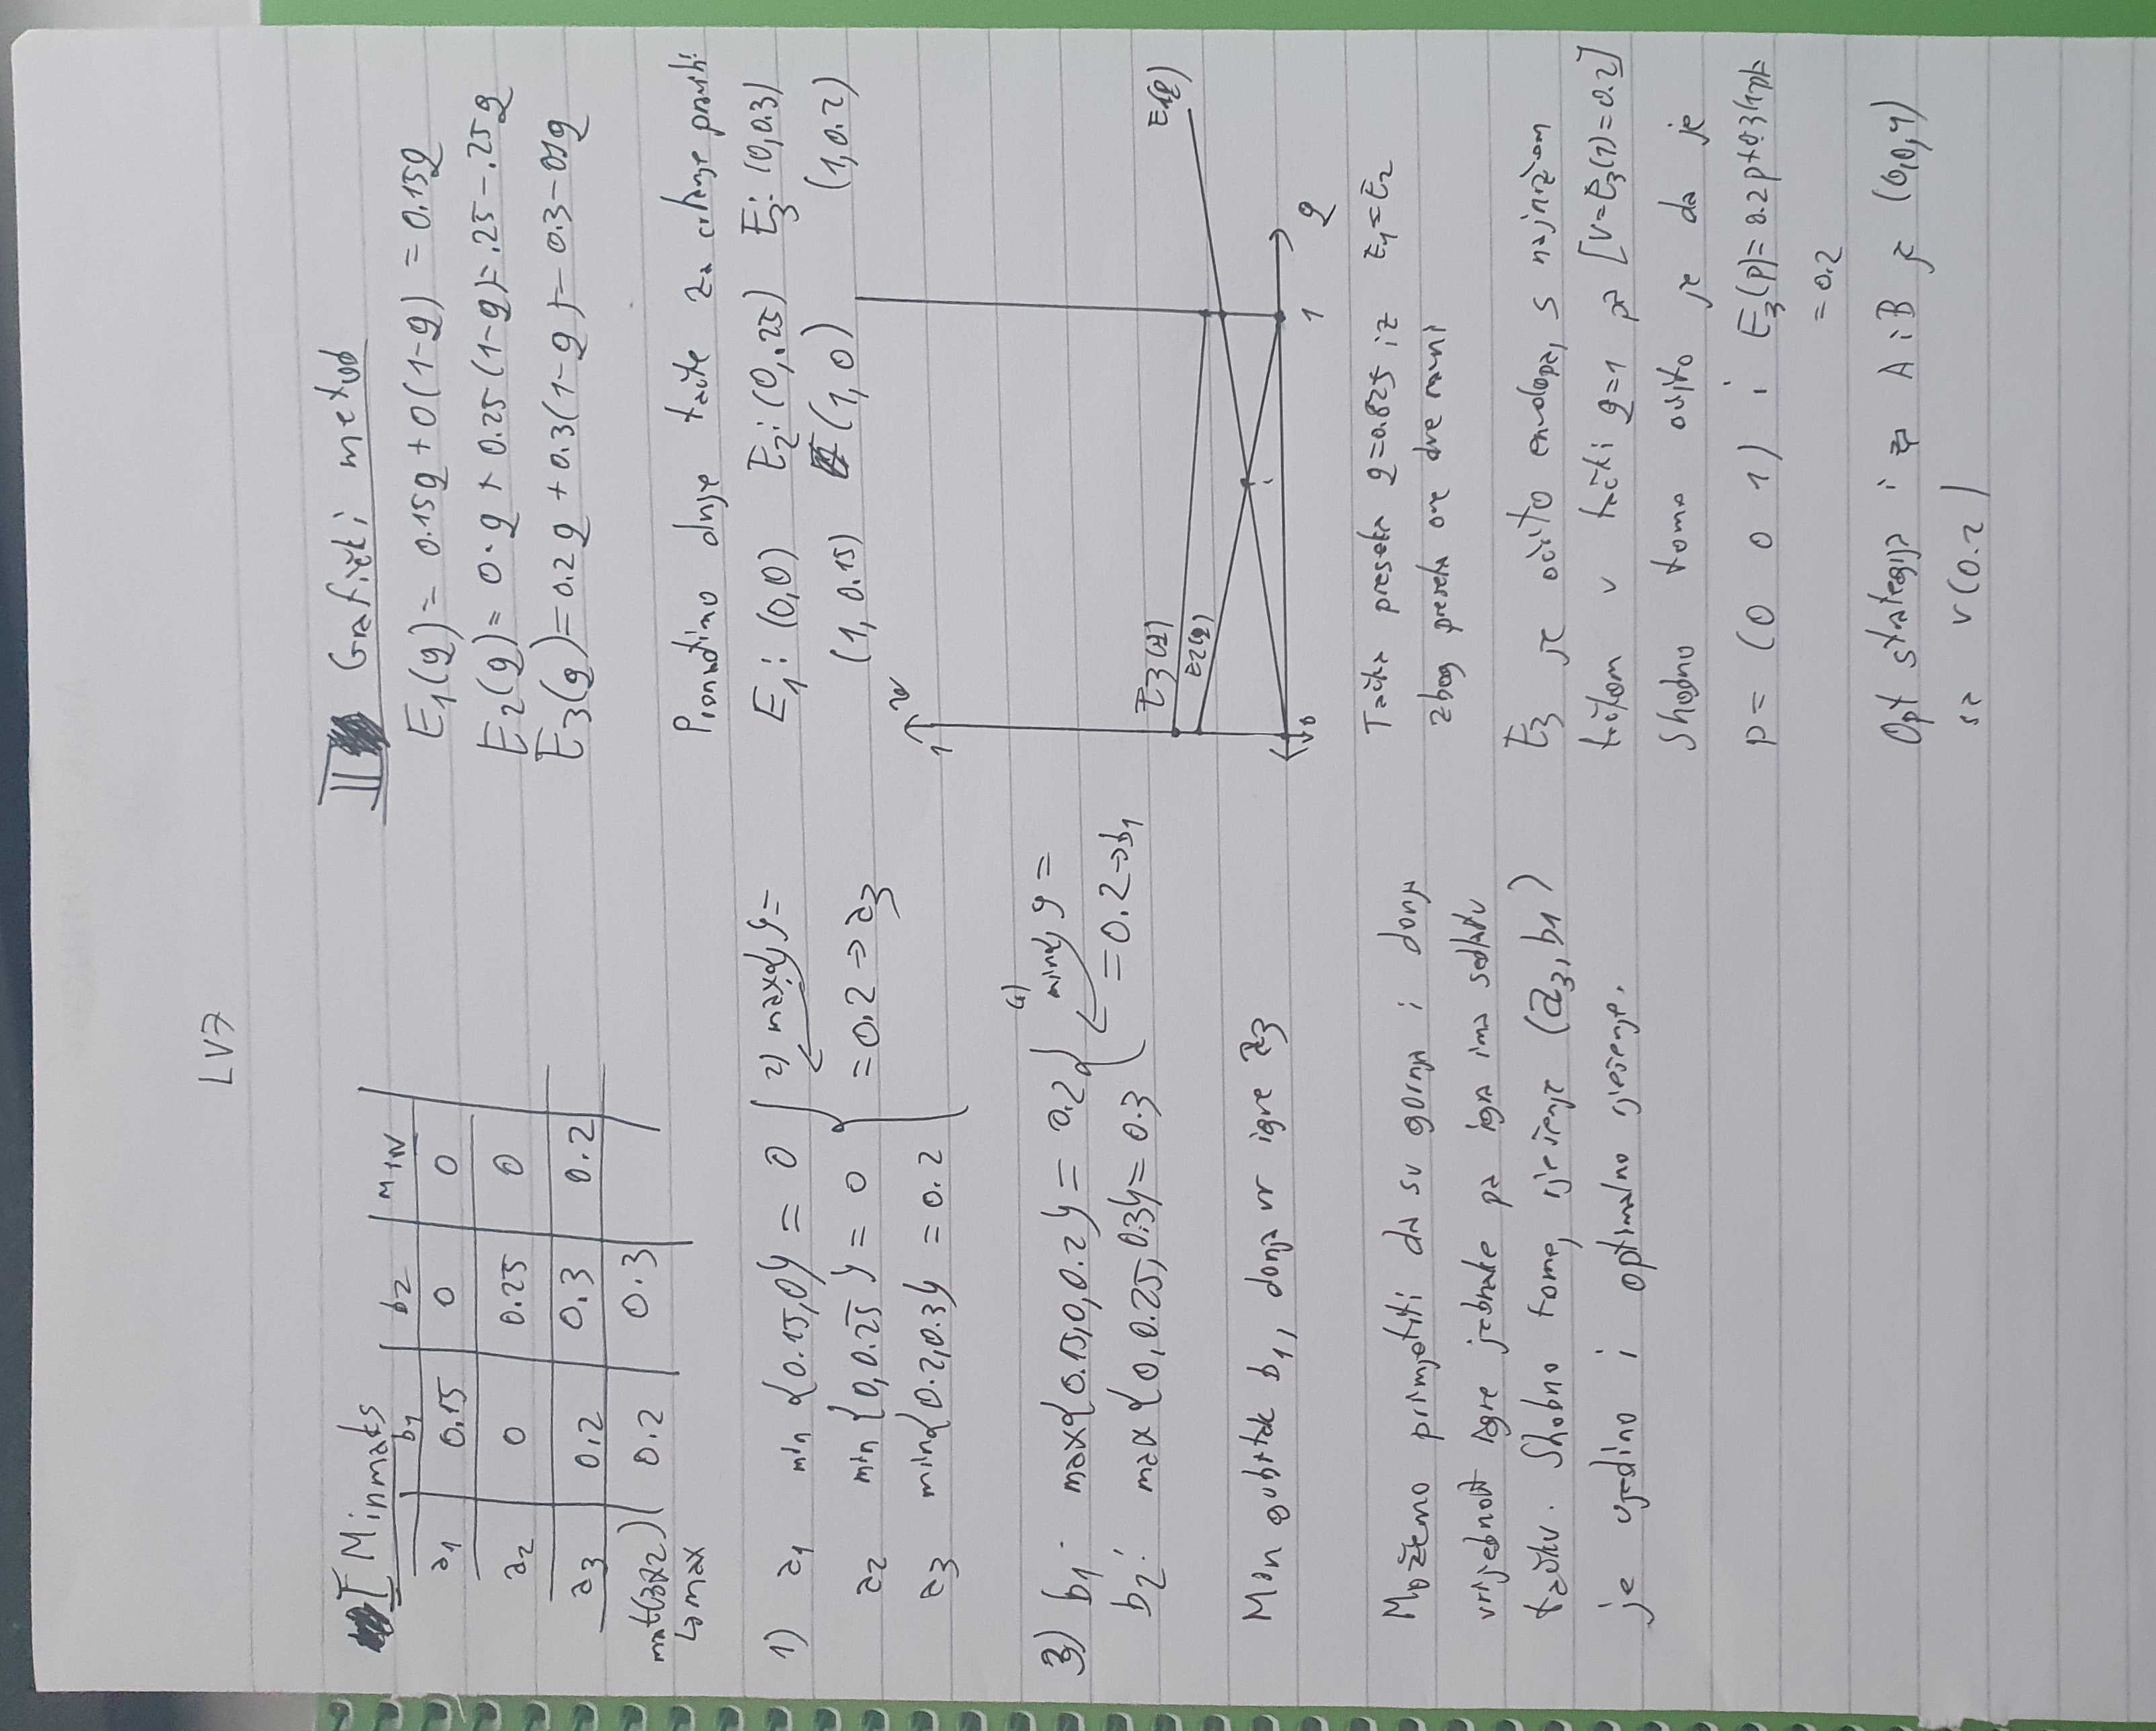 LV7
I Minmaks
b1 b2 MIN
a1 0.15 0 0
a2 0 0.25 0
a3 0.2 0.3 0.2
mat(3x2) 0.2 0.3
↳max
1) a1 min {0.15,0} = 0 2) max{,} =
a2 min {0,0.25} = 0 = 0.2 → a3
a3 min{0.2,0.3} = 0.2
3) b1: max{0.15,0,0.2} = 0.2 4) min{,} =
b2: max {0,0.25,0.3} = 0.3 = 0.2 → b1
Min gubitak b1, donja vr igre a3
Možemo primjetiti da su gornja i donja
vrijednost igre jednake pa igra ima sedlastu
tačku. Shodno tome, rješenje (a3, b1)
je ujedino i optimalno rješenje.
II Grafički metod
E1(q) = 0.15q + 0(1-q) = 0.15q
E2(q) = 0·q + 0.25(1-q) = .25-.25q
E3(q) = 0.2q + 0.3(1-q) = 0.3-01q
Pronađimo dvije tačke za crtanje pravih:
E1: (0,0) E2: (0,.25) E3: (0,0.3)
(1, 0.15) (1,0) (1,0.2)
1
E3(q)
E2(q)
E1(q)
0 1 q
Tačka preseka q=0.825 iz E1=E2
zbog preseka ove dve ravni
E3 je očito envelopa, s najnižom
tačkom u tački q=1 pa [V=E3(1)=0.2]
Shodno tome očito je da je
p = (0 0 1) i E3(p)= 0.2p+0.3(1-p)=
= 0.2
Opt strategija i za A i B je (0,0,1)
sa v(0.2)